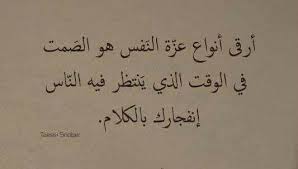 أرقى أنواع عزّة النَفس هو الصَمت
في الوقت الذي يَنتظر فيه النّاس
إنفجارك بالكلام.